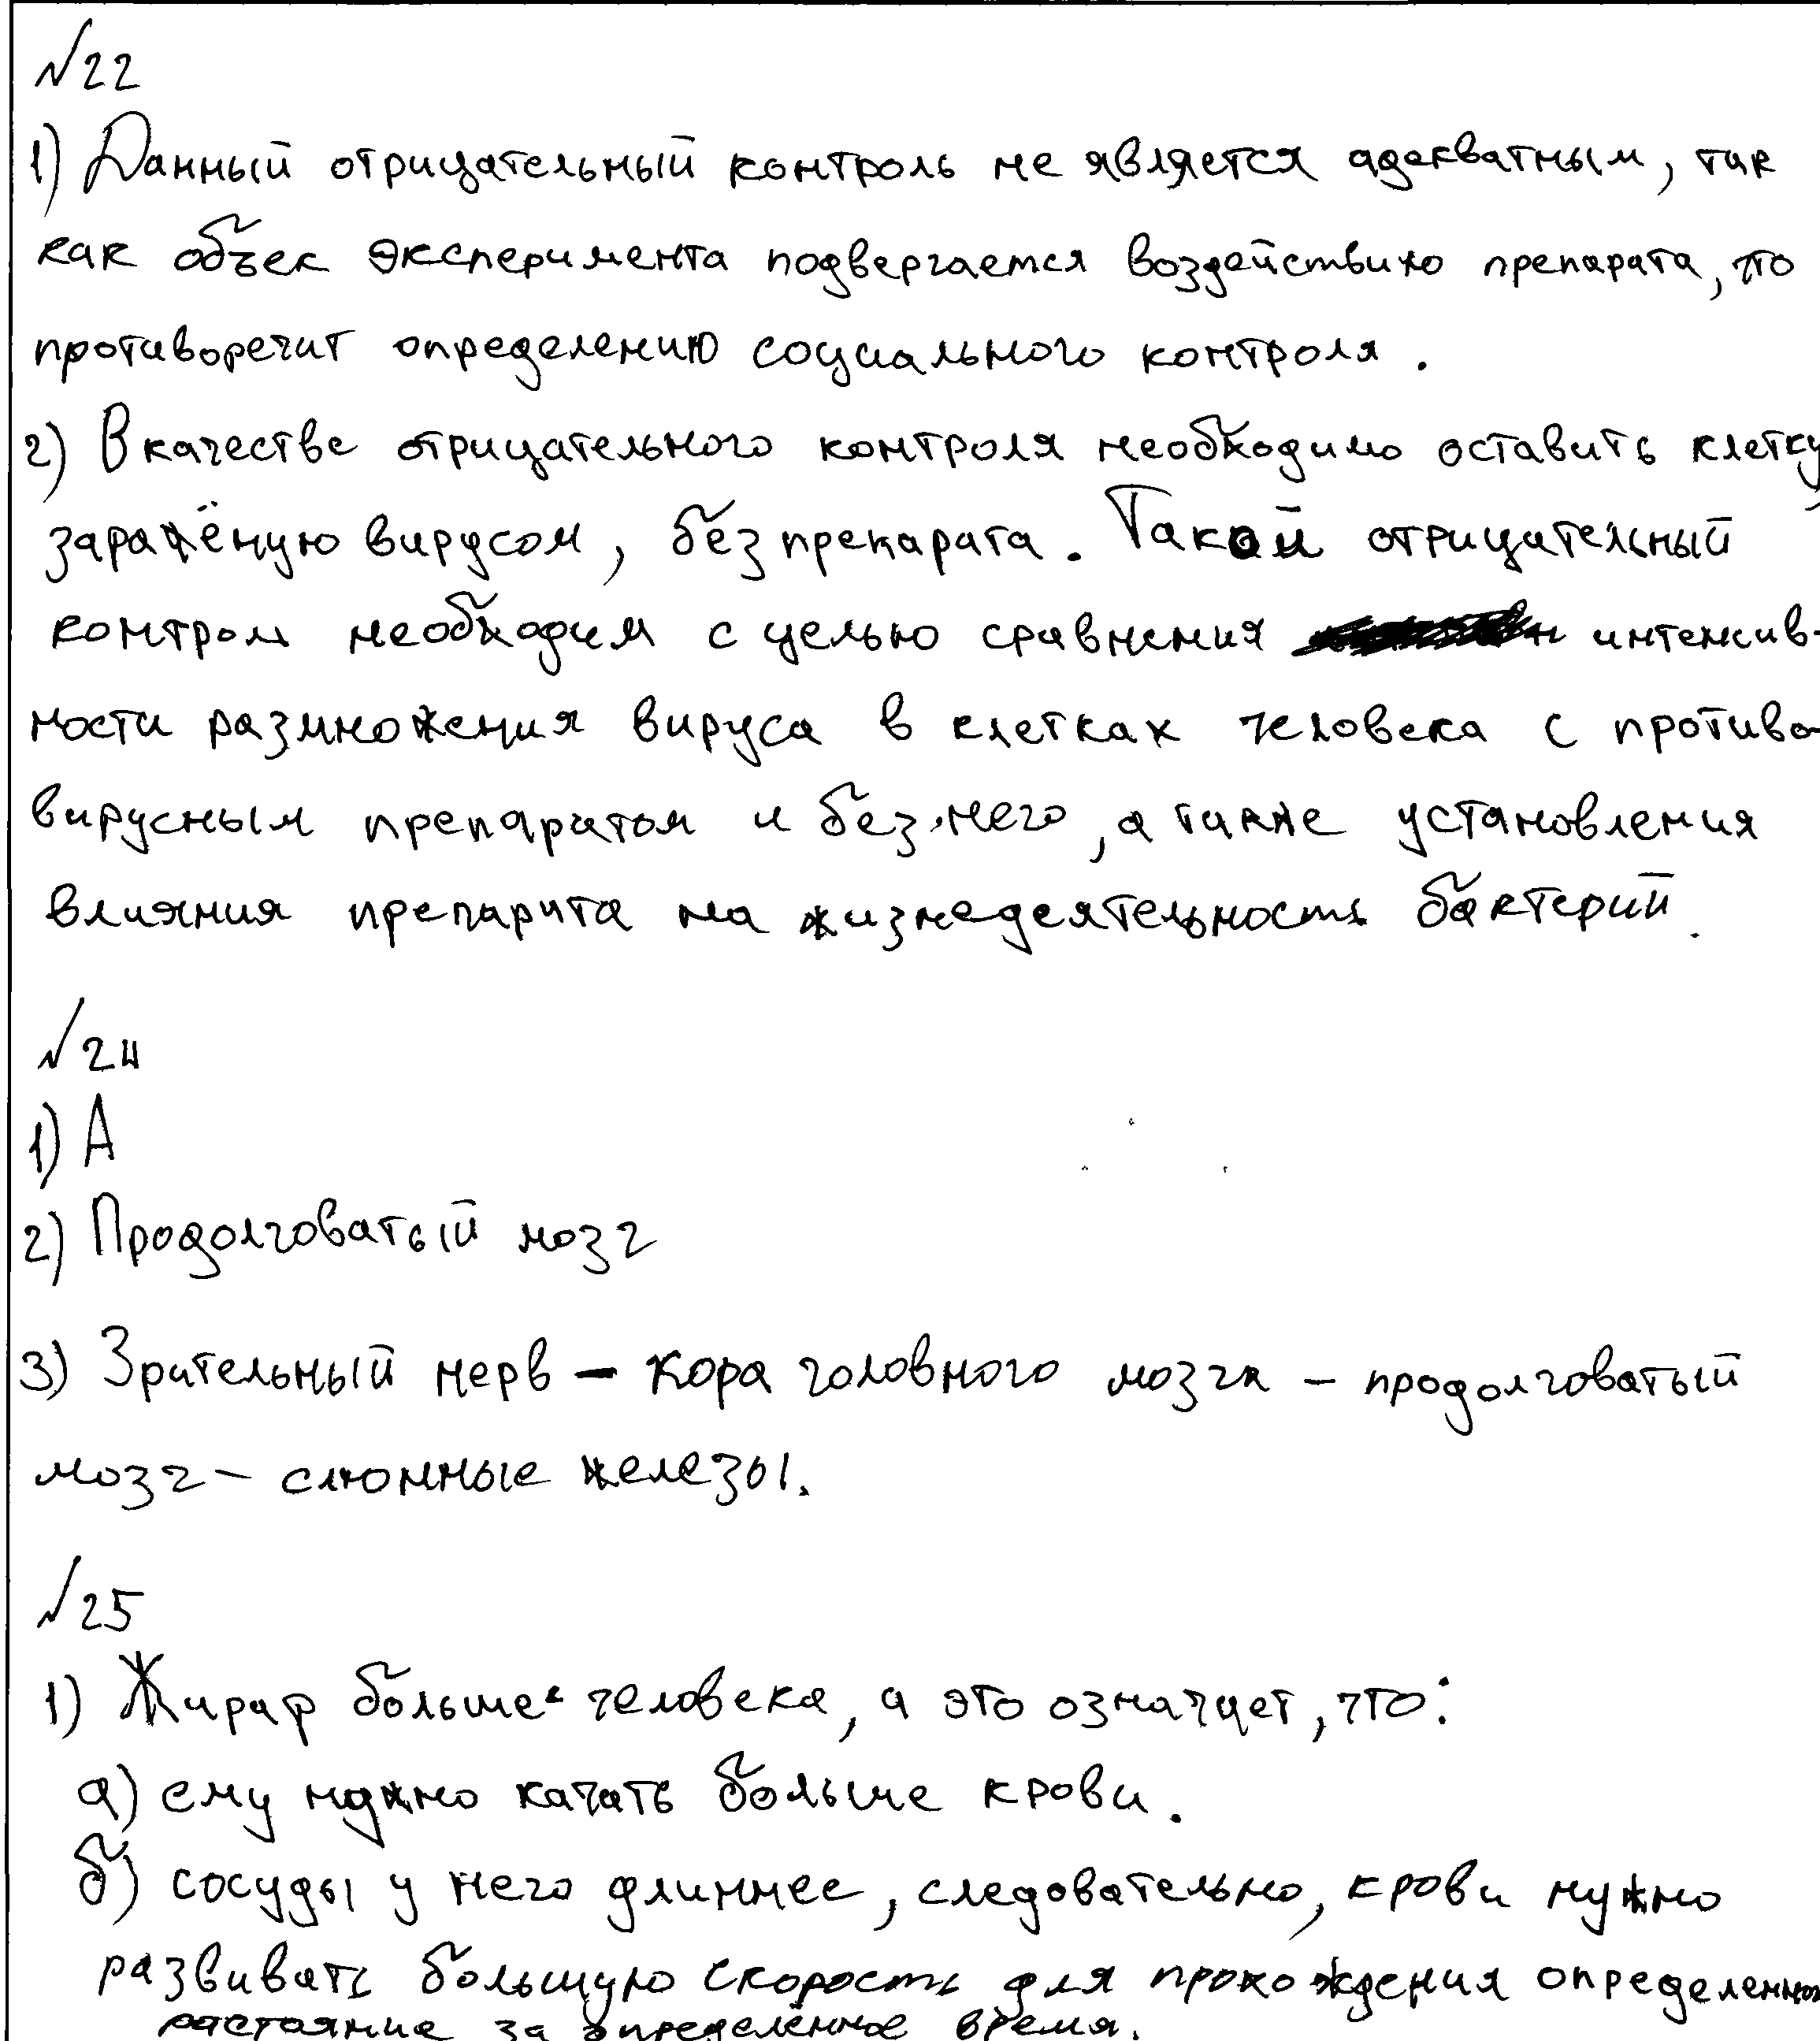 №22
1) Данный отрицательный контроль не является адекватным, так
как объек эксперимента подвергается воздействию препарата, что
противоречит определению социального контроля.
2) В качестве отрицательного контроля необходимо оставить клетку,
заражёную вирусом, без препарата. Такой отрицательный
контроль необходим с целью сравнения интенсив-
ности размножения вируса в клетках человека с противо-
вирусным препаратом и без него, а также установления
влияния препарата на жизнедеятельность бактерий.
№24
1) А
2) Продолговатый мозг
3) Зрительный нерв – кора головного мозга – продолговатый
мозг – слюнные железы.
№25
1) Жираф больше человека, а это означает, что:
а) ему нужно качать больше крови.
б) сосуды у него длиннее, следовательно, крови нужно
развивать большую скорость для прохождения определенное
растояние за определённое время.